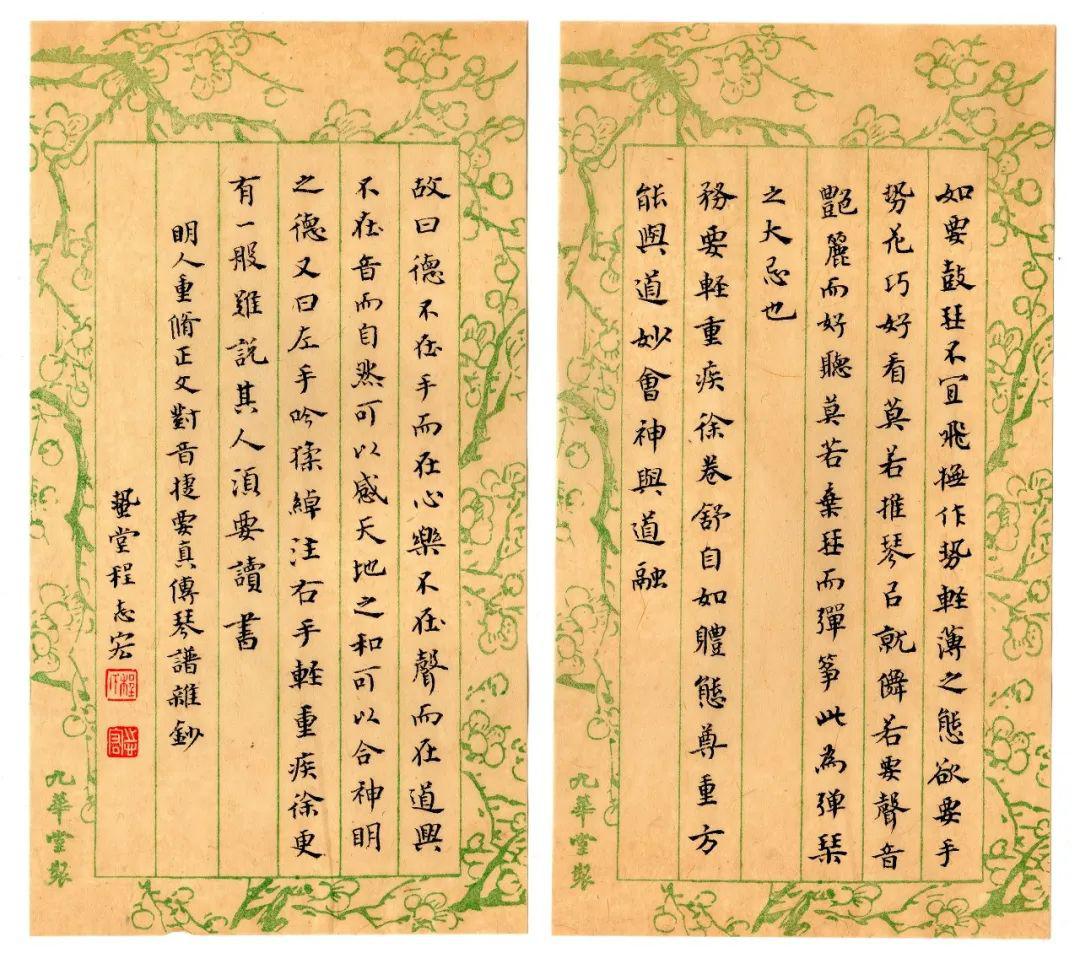 如要鼓珡不宜飛撫作勢輕薄之態欲要手
势花巧好看莫若推琴㠯就儛若要聲音
艷麗而好聽莫若棄珡而彈筝此為弹琹
之大忌也
務要輕重疾徐卷舒自如體態尊重方
能與道妙會神與道融
九華堂製
故曰德不在手而在心樂不在聲而在道興
不在音而自然可以感天地之和可以合神明
之德又曰左手吟猱綽注右手輕重疾徐更
有一般難説其人須要讀書
明人重脩正文對音捷要真傳琴譜雜鈔
堂程志宏
九華堂製